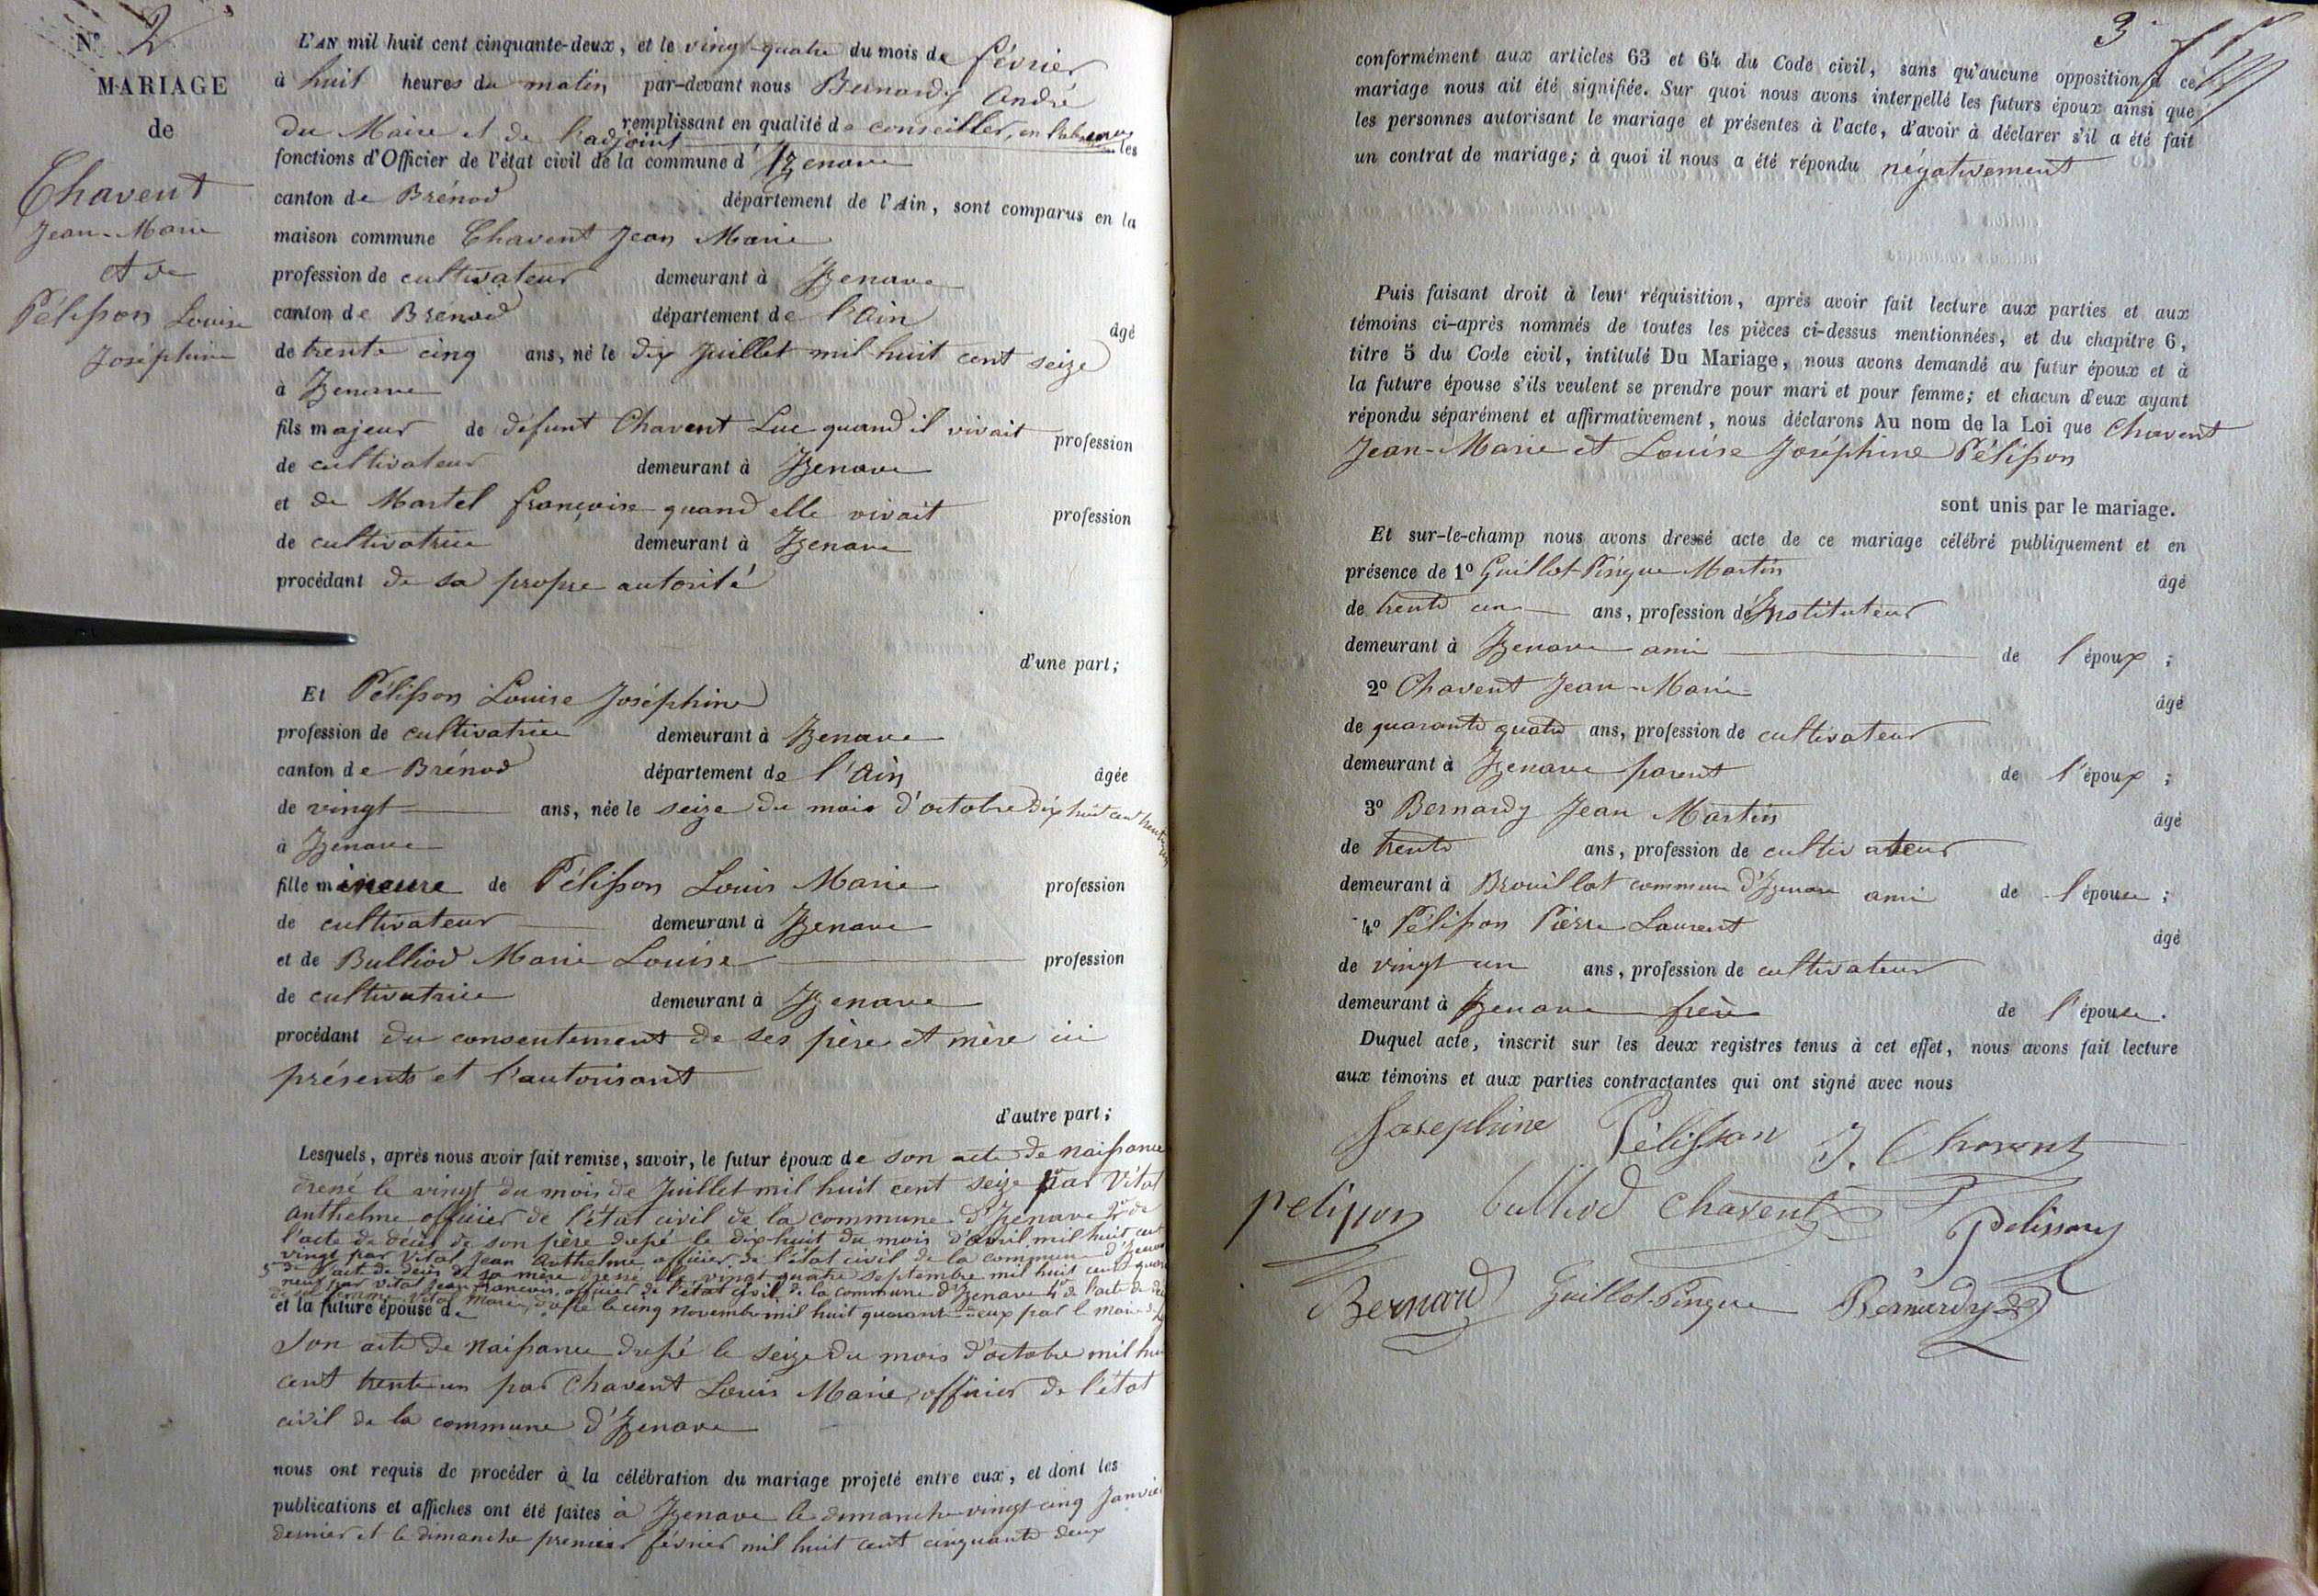 N° 2
MARIAGE
de
Chavent
Jean-Marie
et de
Pélisson Louise
Joséphine
L'AN mil huit cent cinquante-deux, et le vingt-quatre du mois de février
à huit heures du matin par-devant nous Bernardy André
remplissant en qualité de conseiller, en
du Maire et de l'adjoint les
fonctions d'Officier de l'état civil de la commune d'Izenave
canton de Brénod département de l'Ain, sont comparus en la
maison commune Chavent Jean Marie
profession de cultivateur demeurant à Izenave
canton de Brénod département de l'Ain âgé
de trente cinq ans, né le dix Juillet mil huit cent seize
à Izenave
fils majeur de défunt Chavent Luc quand il vivait profession
de cultivateur demeurant à Izenave
et de Martel françoise quand elle vivait profession
de cultivatrice demeurant à Izenave
procédant de sa propre autorité
d'une part;
Et Pélisson Louise Joséphine
profession de cultivatrice demeurant à Izenave
canton de Brénod département de l'Ain âgée
de vingt ans, née le seize du mois d'octobre dix huit cent trente un
à Izenave
fille mineure de Pélisson Louis Marie profession
de cultivateur demeurant à Izenave
et de Bulliod Marie Louise profession
de cultivatrice demeurant à Izenave
procédant du consentement de ses père et mère ici
présents et l'autorisant
d'autre part;
Lesquels, après nous avoir fait remise, savoir, le futur époux de son acte de naissance
dressé le vingt du mois de Juillet mil huit cent seize par Vital
Anthelme officier de l'état civil de la commune d'Izenave 2° de
l'acte de décès de son père dressé le dix huit du mois d'avril mil huit cent
vingt par Vital Jean Anthelme officier de l'état civil de la commune d'Izenave
3° de l'acte de décès de sa mère dressé le vingt quatre septembre mil huit cent
neuf par Vital Jean françois officier de l'état civil de la commune d'Izenave 4° de l'acte de
de sa femme Vital Marie, dressé le cinq novembre mil huit quarante deux par le Maire
et la future épouse de
son acte de naissance dressé le seize du mois d'octobre mil huit
cent trente un par Chavent Louis Marie, officier de l'état
civil de la commune d'Izenave
nous ont requis de procéder à la célébration du mariage projeté entre eux, et dont les
publications et affiches ont été faites à Izenave le dimanche vingt cinq Janvier
dernier et le dimanche premier février mil huit cent cinquante deux
3
conformément aux articles 63 et 64 du Code civil, sans qu'aucune opposition à ce
mariage nous ait été signifiée. Sur quoi nous avons interpellé les futurs époux ainsi que
les personnes autorisant le mariage et présentes à l'acte, d'avoir à déclarer s'il a été fait
un contrat de mariage; à quoi il nous a été répondu négativement
Puis faisant droit à leur réquisition, après avoir fait lecture aux parties et aux
témoins ci-après nommés de toutes les pièces ci-dessus mentionnées, et du chapitre 6,
titre 5 du Code civil, intitulé Du Mariage, nous avons demandé au futur époux et à
la future épouse s'ils veulent se prendre pour mari et pour femme; et chacun d'eux ayant
répondu séparément et affirmativement, nous déclarons Au nom de la Loi que Chavent
Jean-Marie et Louise Joséphine Pélisson
sont unis par le mariage.
Et sur-le-champ nous avons dressé acte de ce mariage célébré publiquement et en
présence de 1° Guillot-Pingue Martin âgé
de trente un ans, profession d'Instituteur
demeurant à Izenave ami de l'époux;
2° Chavent Jean-Marie âgé
de quarante quatre ans, profession de cultivateur
demeurant à Izenave parent de l'époux;
3° Bernardy Jean Martin âgé
de trente ans, profession de cultivateur
demeurant à Brouillat commune d'Izenave ami de l'épouse;
4° Pélisson Pierre Laurent âgé
de vingt un ans, profession de cultivateur
demeurant à Izenave frère de l'épouse.
Duquel acte, inscrit sur les deux registres tenus à cet effet, nous avons fait lecture
aux témoins et aux parties contractantes qui ont signé avec nous
Josephine Pélisson J. Chavent
pelisson bulliod Chavent Pelisson
Bernard Guillot-Pingue Bernardy